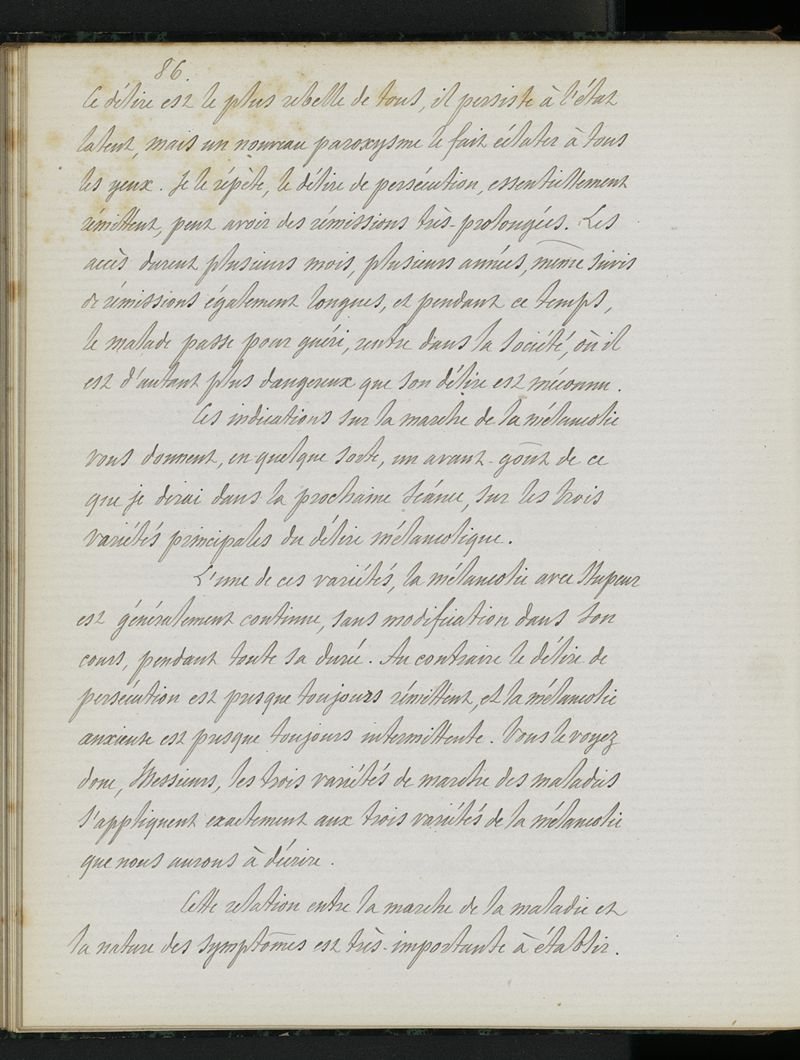 86.
Ce délire est le plus rebelle de tous, il persiste à l'état
latent, mais un nouveau paroxysme le fait éclater à tous
les yeux. Je le répète, le délire de persécution, essentiellement
rémittent, peut avoir des rémissions très-prolongées. Les
accès durent plusieurs mois, plusieurs années, même suivis
de rémissions également longues, et pendant ce temps,
le malade passe pour guéri, rentre dans la société, où il
est d'autant plus dangereux que son délire est méconnu.
Ces indications sur la marche de la mélancolie
vous donnent, en quelque sorte, un avant-goût de ce
que je dirai dans la prochaine séance, sur les trois
variétés principales du délire mélancolique.
L'une de ces variétés, la mélancolie avec stupeur
est généralement continue, sans modification dans son
cours, pendant toute sa durée. Au contraire le délire de
persécution est presque toujours rémittent, et la mélancolie
anxieuse est presque toujours intermittente. Vous le voyez
donc, Messieurs, les trois variétés de marche des maladies
s'appliquent exactement aux trois variétés de la mélancolie
que nous aurons à décrire.
Cette relation entre la marche de la maladie et
la nature des symptômes est très-importante à établir.